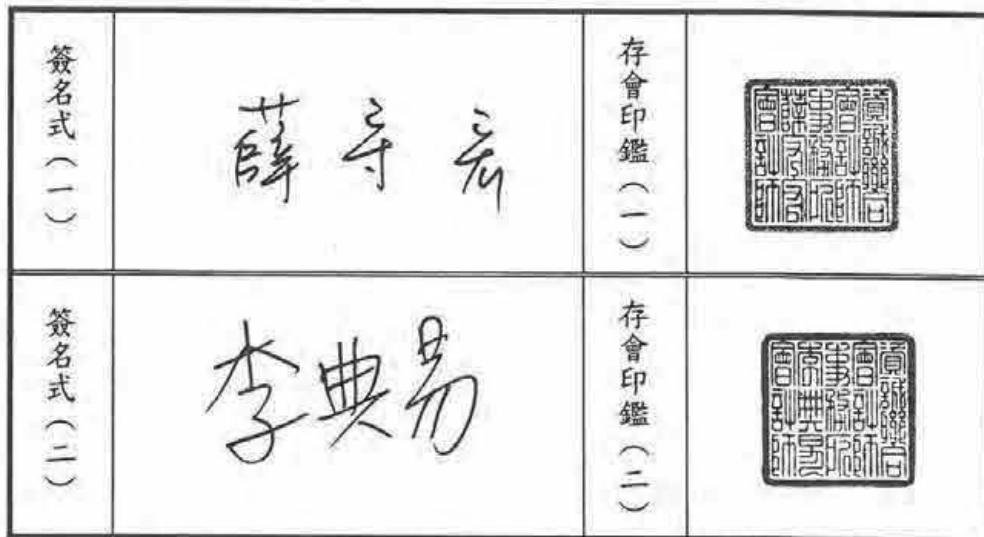 簽名式(一)
薛守宏
存會印鑑(一)
資誠聯合
會計師
事務所
薛守宏
會計師
簽名式(二)
李典易
存會印鑑(二)
資誠聯合
會計師
事務所
李典易
會計師